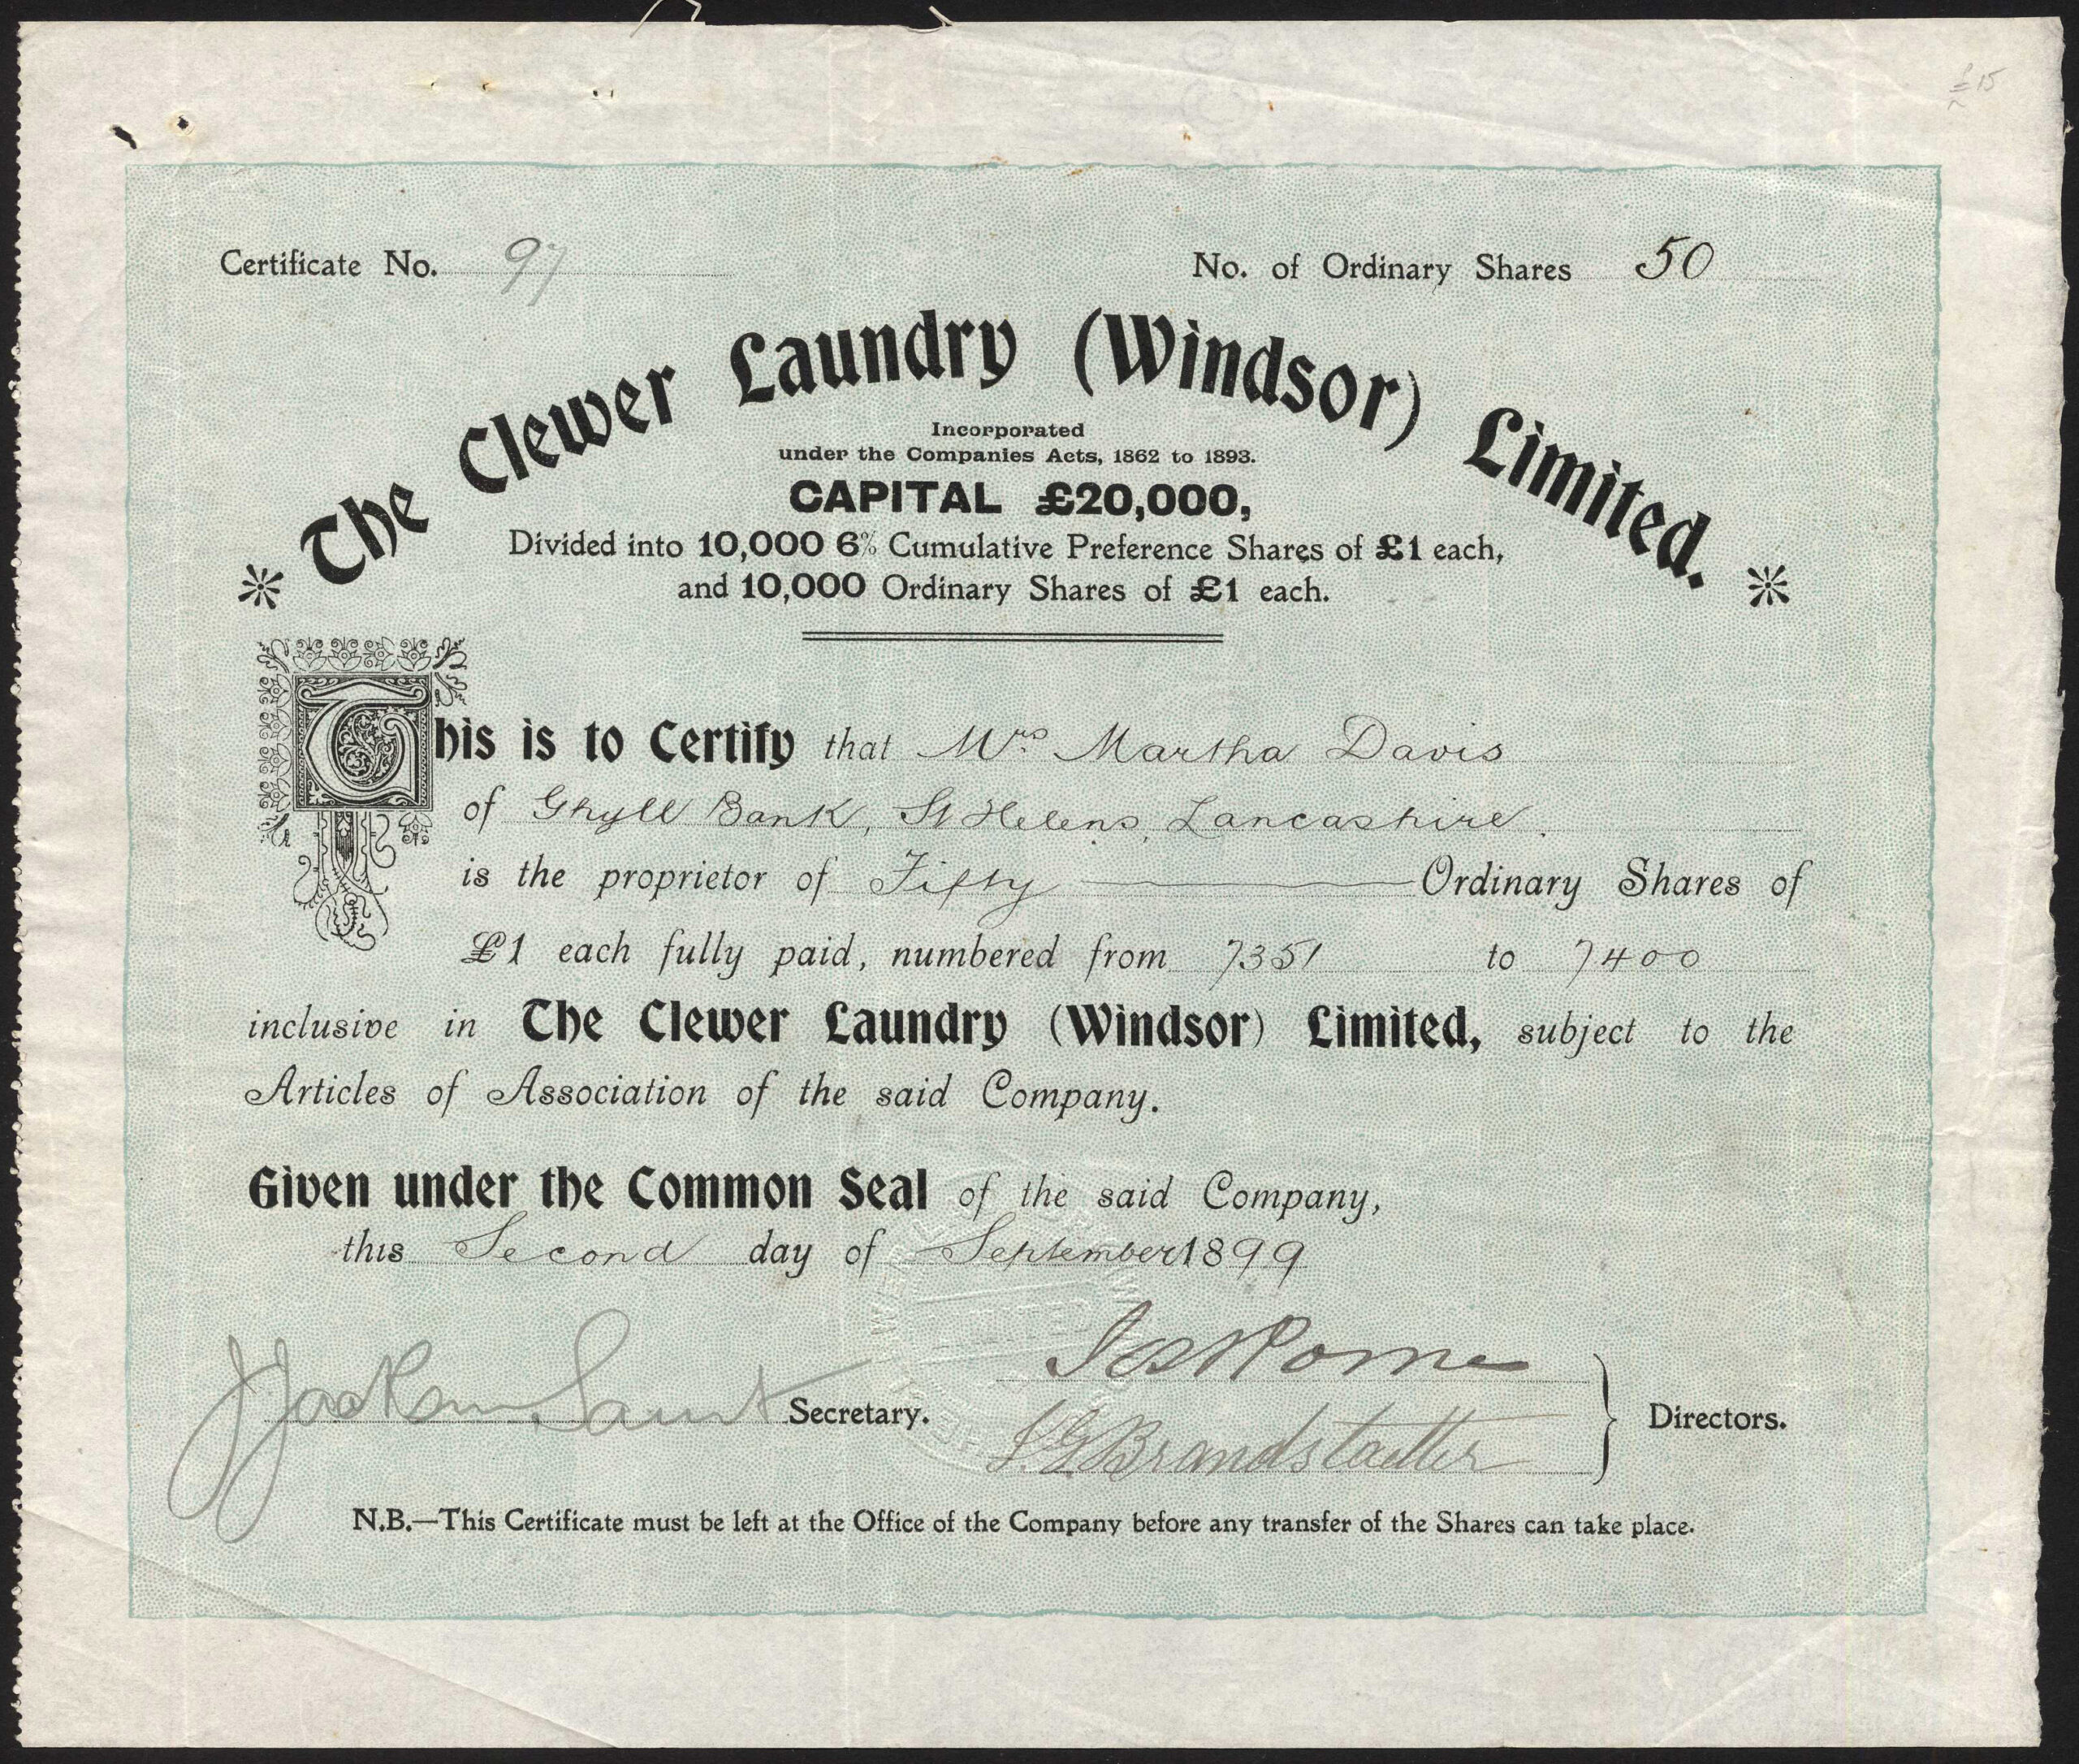 £15
Certificate No. 97
No. of Ordinary Shares 50
The Clewer Laundry (Windsor) Limited.
Incorporated
under the Companies Acts, 1862 to 1893.
CAPITAL £20,000,
Divided into 10,000 6% Cumulative Preference Shares of £1 each,
and 10,000 Ordinary Shares of £1 each.
This is to Certify that Mrs. Martha Davis
of Ghyll Bank, St Helens, Lancashire.
is the proprietor of Fifty Ordinary Shares of
£1 each fully paid, numbered from 7351 to 7400
inclusive in The Clewer Laundry (Windsor) Limited, subject to the
Articles of Association of the said Company.
Given under the Common Seal of the said Company,
this Second day of September 1899
LIMITED
Secretary.
Brandstaetter
Directors.
N.B.—This Certificate must be left at the Office of the Company before any transfer of the Shares can take place.